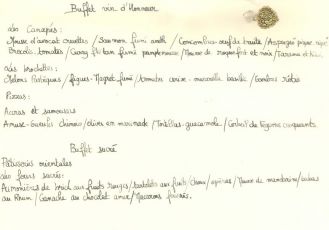 Buffet vin d'Honneur
Les Canapés:
Mousse d'avocat crevettes / Saumon fumé aneth / Concombre-oeuf de truite / Asperges
Brocolis tomates / fumé pamplemousse / Mousse de roquefort et noix / Tarama et
Les brochettes:
Melons Pastèques / figues-Magret fumé / tomates cerise-mozzarella basilic / Gambas rôties
Pizzas:
Accras et samoussas
Amuse-Gueules chinois / olives en marinade / Tortillas-guacamole / de légumes croquants
Buffet sucré
Pâtisseries orientales
Les fours sucrés:
Aumônières de brick aux fruits rouges / tartelettes aux fruits / Choux / / Mousse de mandarine / babas
au Rhum / Ganache au chocolat amer / Macarons